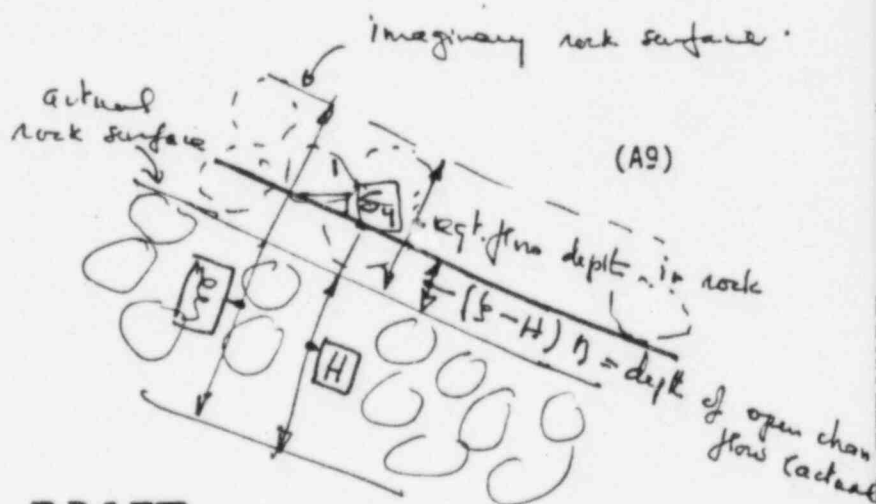 imaginary rock surface.
actual
rock surface
(A9)
eqt. flow depth in rock
(ξ-H) η = depth of open chan
flow (actual
ξ
H